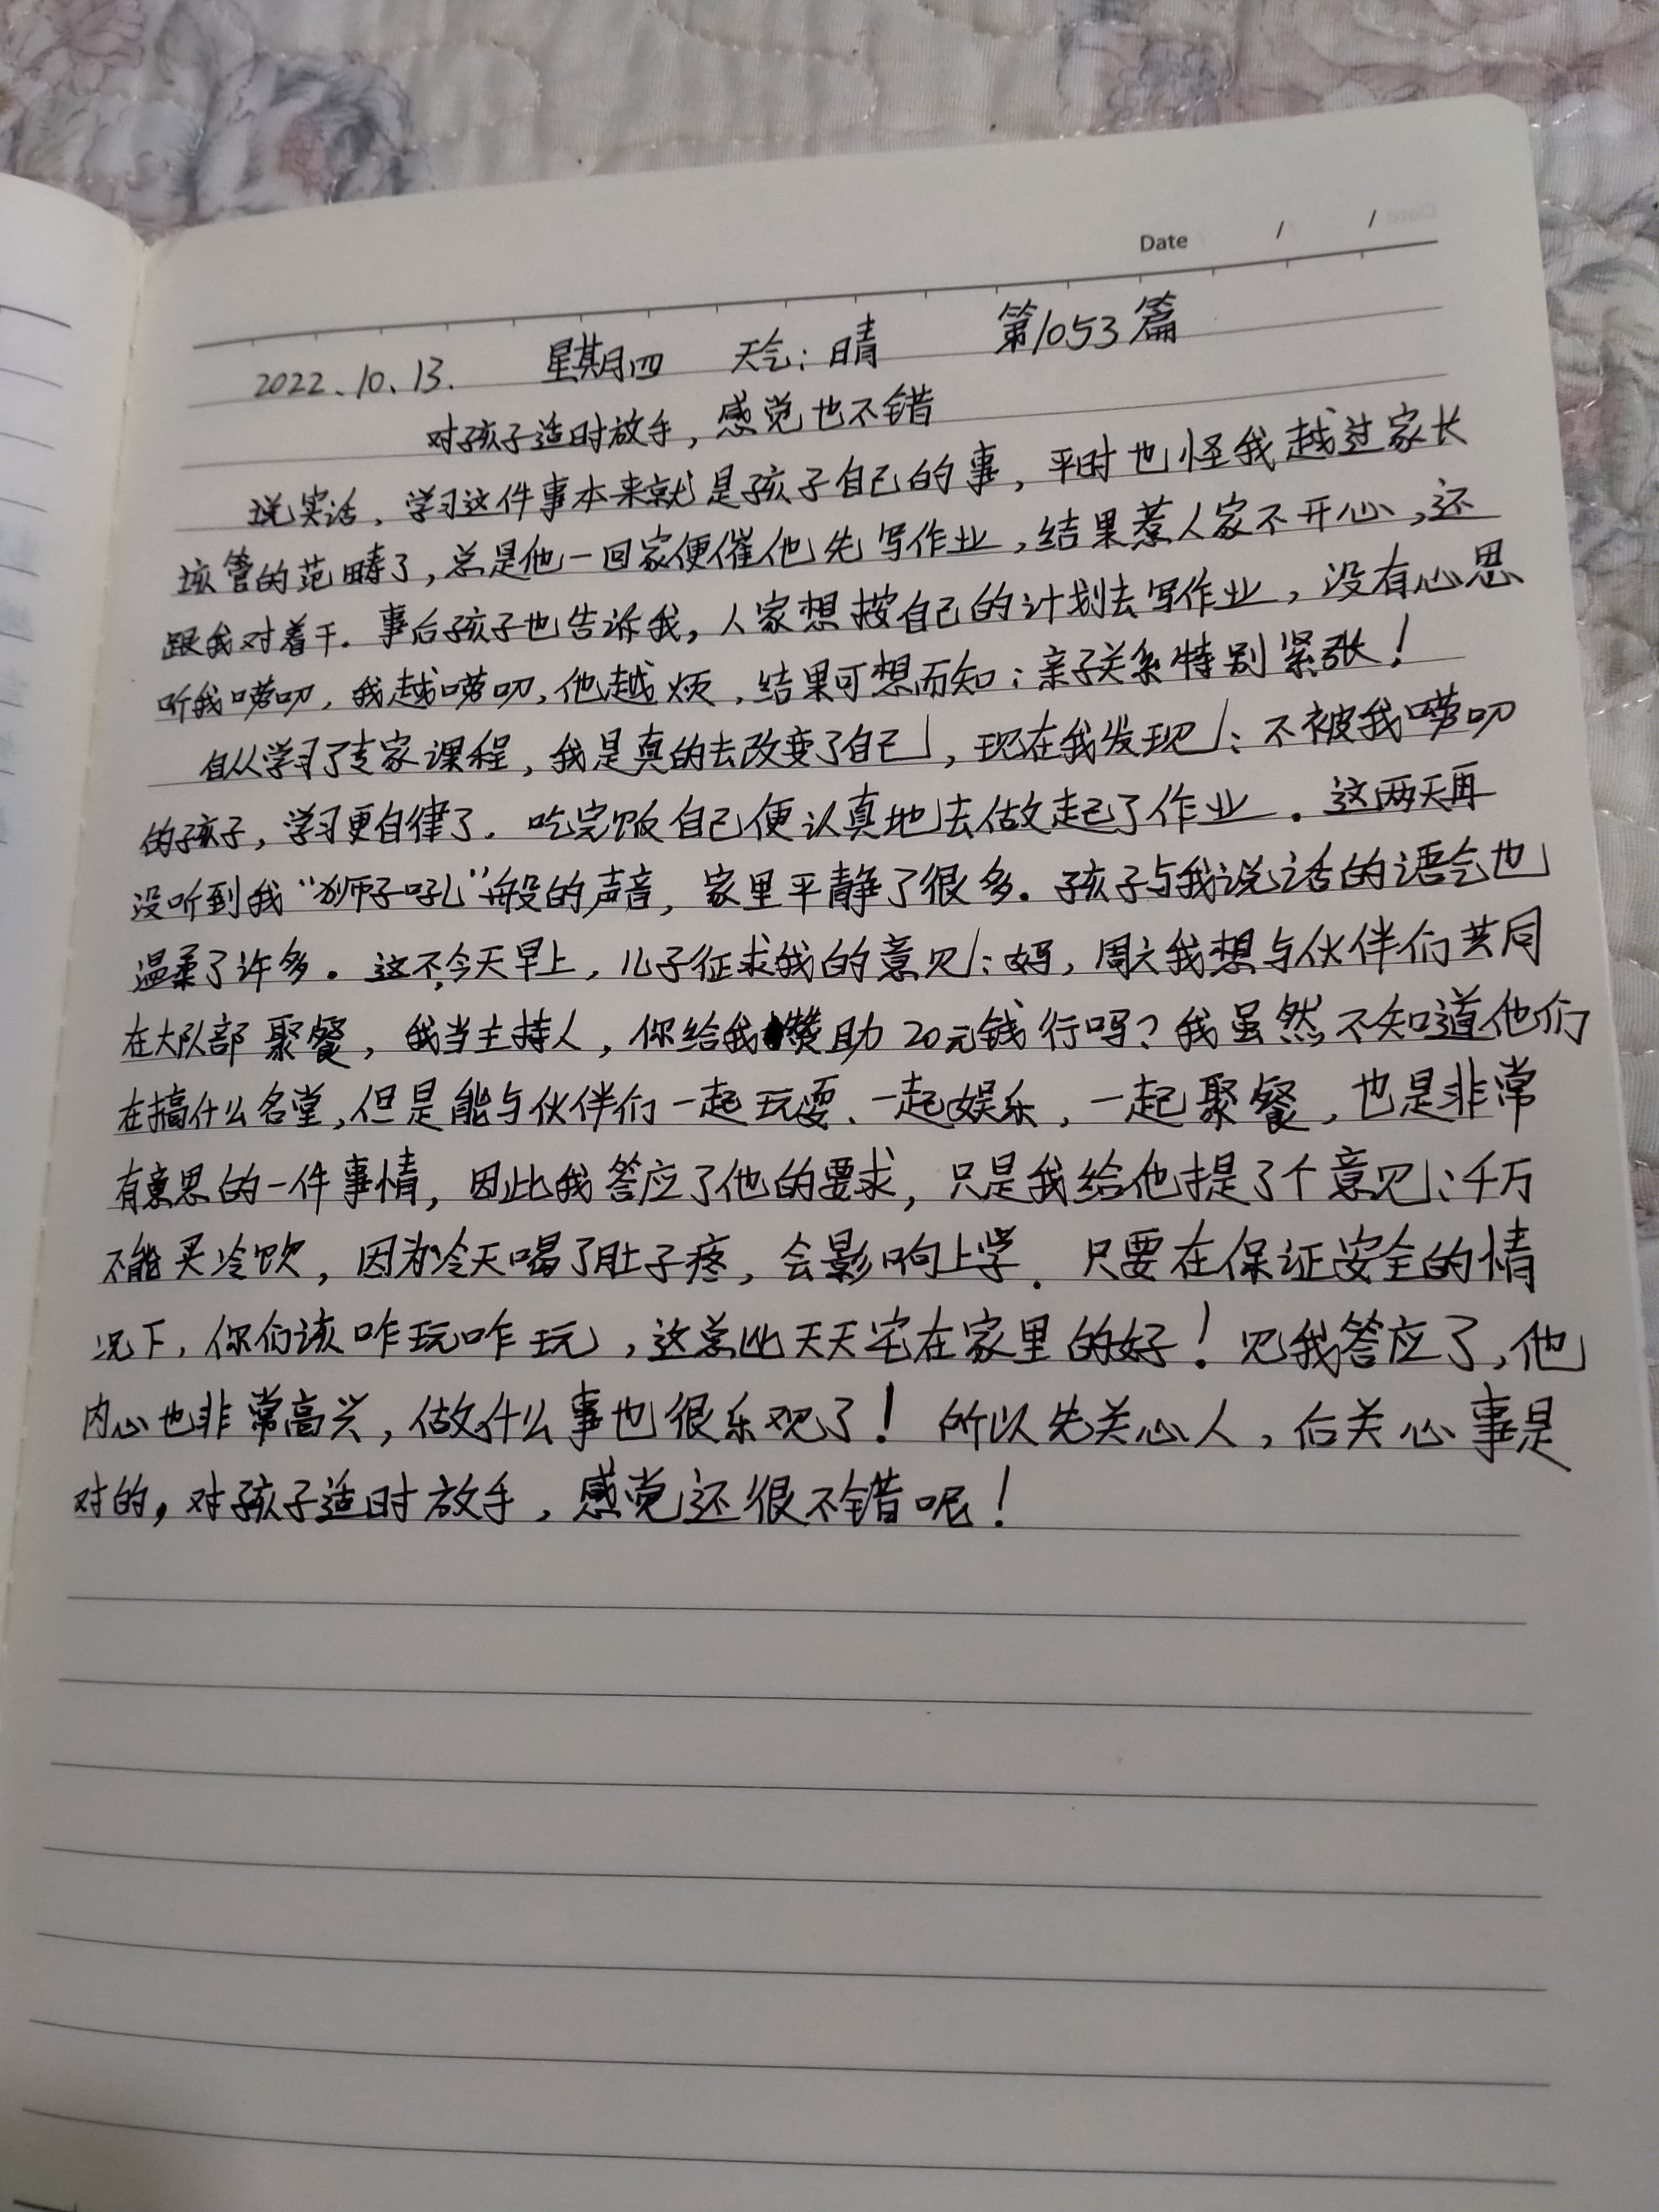 Date / /
2022.10.13. 星期四 天气：晴 第1053篇
对孩子适时放手，感觉也不错
说实话，学习这件事本来就是孩子自己的事，平时也怪我越过家长
该管的范畴了，总是他一回家便催他先写作业，结果惹人家不开心，还
跟我对着干．事后孩子也告诉我，人家想按自己的计划去写作业，没有心思
听我唠叨，我越唠叨，他越烦，结果可想而知：亲子关系特别紧张！
自从学习了专家课程，我是真的去改变了自己，现在我发现：不被我唠叨
的孩子，学习更自律了．吃完饭自己便认真地去做起了作业．这两天再
没听到我“狮子吼”般的声音，家里平静了很多．孩子与我说话的语气也
温柔了许多．这不，今天早上，儿子征求我的意见：妈，周六我想与伙伴们共同
在大队部聚餐，我当主持人，你给我赞助20元钱行吗？我虽然不知道他们
在搞什么名堂，但是能与伙伴们一起玩耍、一起娱乐，一起聚餐，也是非常
有意思的一件事情，因此我答应了他的要求，只是我给他提了个意见：千万
不能买冷饮，因为冷天喝了肚子疼，会影响上学．只要在保证安全的情
况下，你们该咋玩咋玩，这总比天天宅在家里的好！见我答应了，他
内心也非常高兴，做什么事也很乐观了！所以先关心人，后关心事是
对的，对孩子适时放手，感觉还很不错呢！